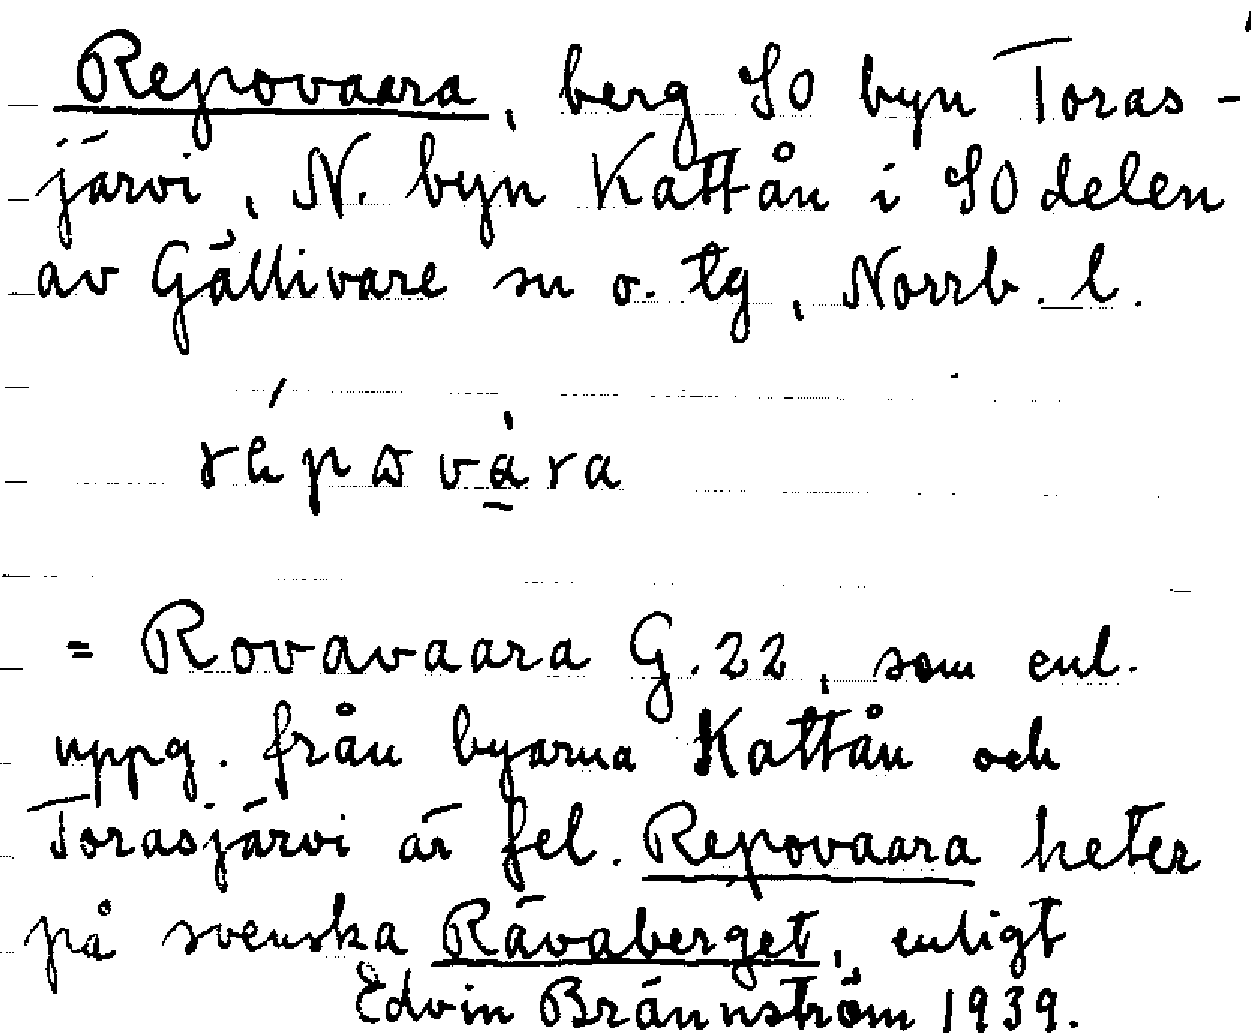 Repovaara, berg SO byn Toras-
järvi, N. byn Kattån i SO delen
av Gällivare sn o. tg, Norrb. l.
= Rovavaara G. 22, som enl.
uppg. från byarna Kattån och
Torasjärvi är fel. Repovaara heter
på svenska Rävaberget, enligt
Edvin Brännström 1939.